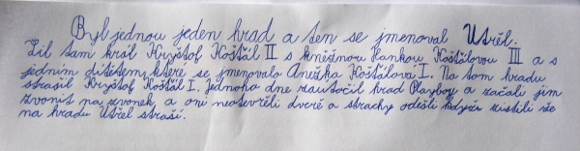 Byl jednou jeden hrad a ten se jmenoval Utřel.
Žil tam král Kryštof Košťál II s kněžnou Hankou Košťálovou III a s
jedním dítětem, které se jmenovalo Anežka Košťálová I. Na tom hradu
strašil Kryštof Košťál I. Jednoho dne zautočil hrad Playboy a začali jim
zvonit na zvonek a oni neotevřeli dveře a strachy odešli když zistili že
na hradu Utřel straší.